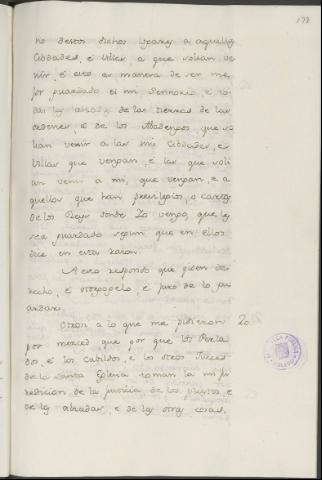 177
no destos dichos logares a aquellas
Cibdades, e Villas a que solian ve-
nir, e esto es manera de ser me-
jor guardado el mi Sennorio, e to-
das las alzadas de las tierras de las
ordenes, e de los Abadengos, que so-
lian venir a las mis Cibdades, e
Villas que vengan, e las que soli-
an venir a mi, que vengan, e a
aquellos que han previlegios, o cartas
de los Reyes donde Yo vengo, que les
sea guardado segunt que en ellos
dice en esta razon.
A esto respondo que piden de-
recho, e otorgogelo, e juro de lo gu-
ardar.
Otrosi a lo que me pidieron 20
por merced que por que los Perla-
dos, e los Cabildos, e los otros Jueces
de la Santa Eglesia toman la mi ju-
redicion de la justicia de los pleytos, e
de las alzadas, e de las otras cosas,